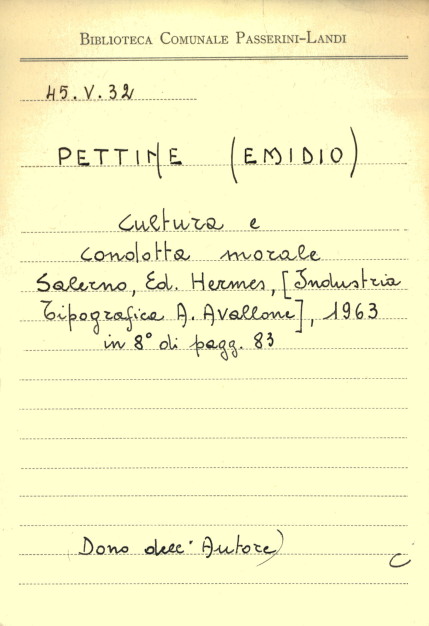 Biblioteca Comunale Passerini-Landi
45.V.32
PETTINE (EMIDIO)
Cultura e
condotta morale
Salerno, Ed. Hermes, [Industria
Tipografica A. Avallone], 1963
in 8° di pagg. 83
(Dono dell'Autore)
C